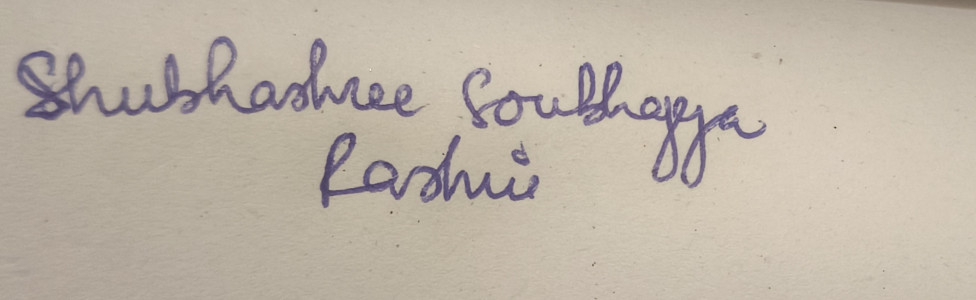 Shubhashree Soubhagya
Rashmi